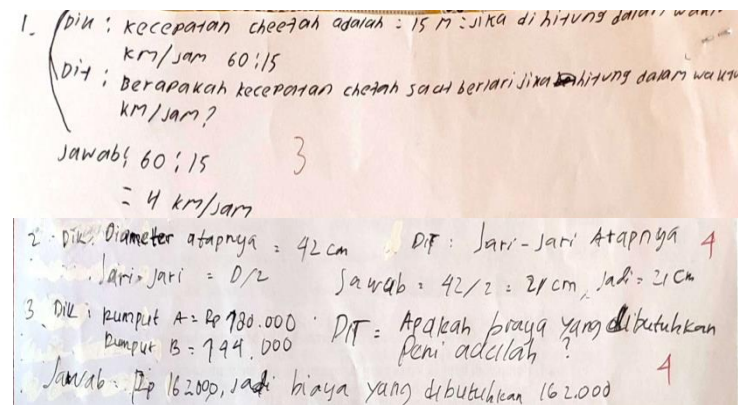 1. Din : kecepatan cheetah adalah : 15 M : Jika di hitung dalam waktu
km/jam 60 : 15
Dit : Berapakah kecepatan chetah saat berlari Jika hitung dalam waktu
km/jam?
Jawab : 60 : 15 3
= 4 km/jam
2. Dik : Diameter atapnya = 42 cm DiT : Jari-Jari Atapnya 4
Jari-Jari = D/2 Jawab = 42/2 = 21 cm, Jadi = 21 cm
3. Dik : Rumput A = Rp 180.000 DiT = Apakah biaya yang dibutuhkan
Rumput B = 144.000 Peni adalah ?
Jawab : Rp 162000, Jadi biaya yang dibutuhkan 162.000 4